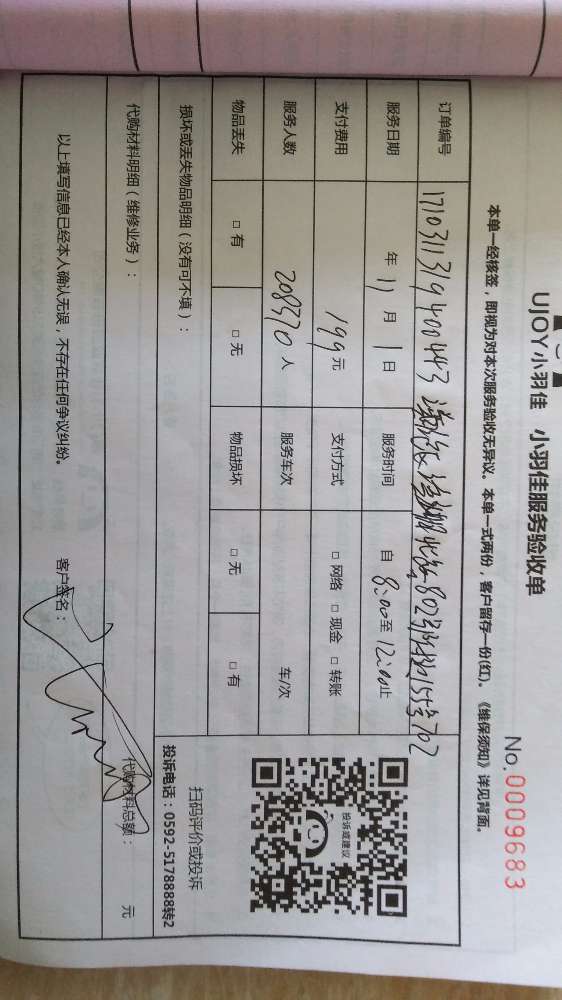 UJOY小羽佳 小羽佳服务验收单
No.0009683
本单一经核签，即视为对本次服务验收无异议。本单一式两份，客户留存一份(红)。《维保须知》详见背面。
订单编号 1710311319400443 802 155号702
服务日期 年 11 月 1 日 服务时间 自 8:00 至 12:00 止
支付费用 199元 支付方式 □ 网络 □ 现金 □ 转账
服务人数 208370 人 服务车次 车/次
物品丢失 □ 有 □ 无 物品损坏 □ 无 □ 有
投诉或建议
扫码评价或投诉
投诉电话：0592-5178888转2
损坏或丢失物品明细（没有可不填）：
代购材料明细（维修业务）：
代购材料总额： 元
以上填写信息已经本人确认无误，不存在任何争议纠纷。 客户签名：